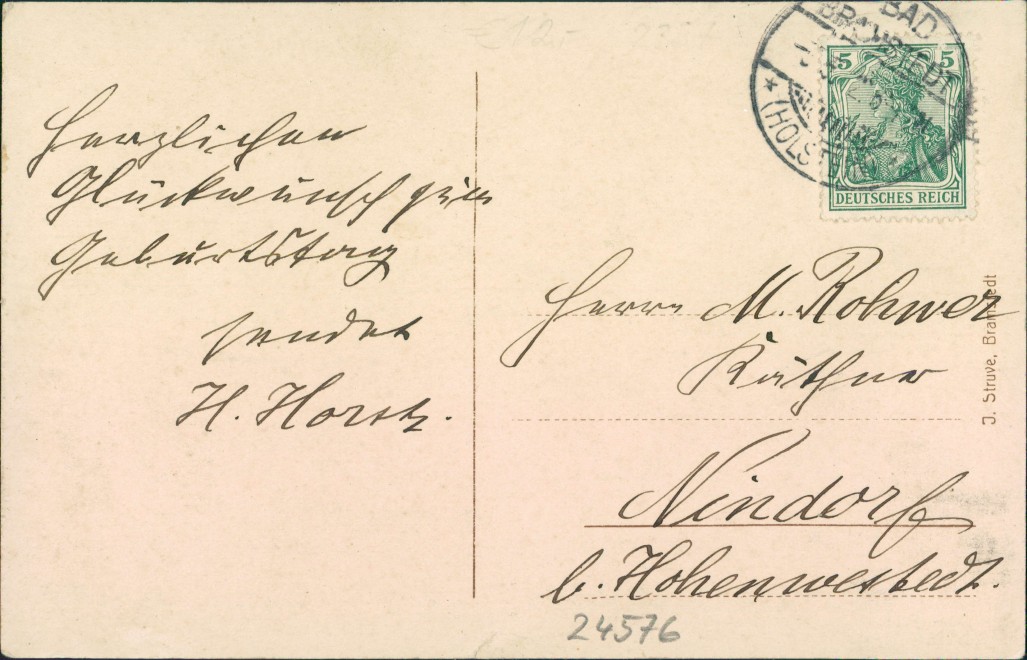 Herzlichen
Glückwunsch zum
Geburtstag
sendet
H. Horst.
BAD
BRAMSTEDT
* (HOLSTEIN)
5 5
DEUTSCHES REICH
Herrn M. Rohwer
Käthner
Nindorf
b. Hohenwestedt.
J. Struve, Bramstedt
24576